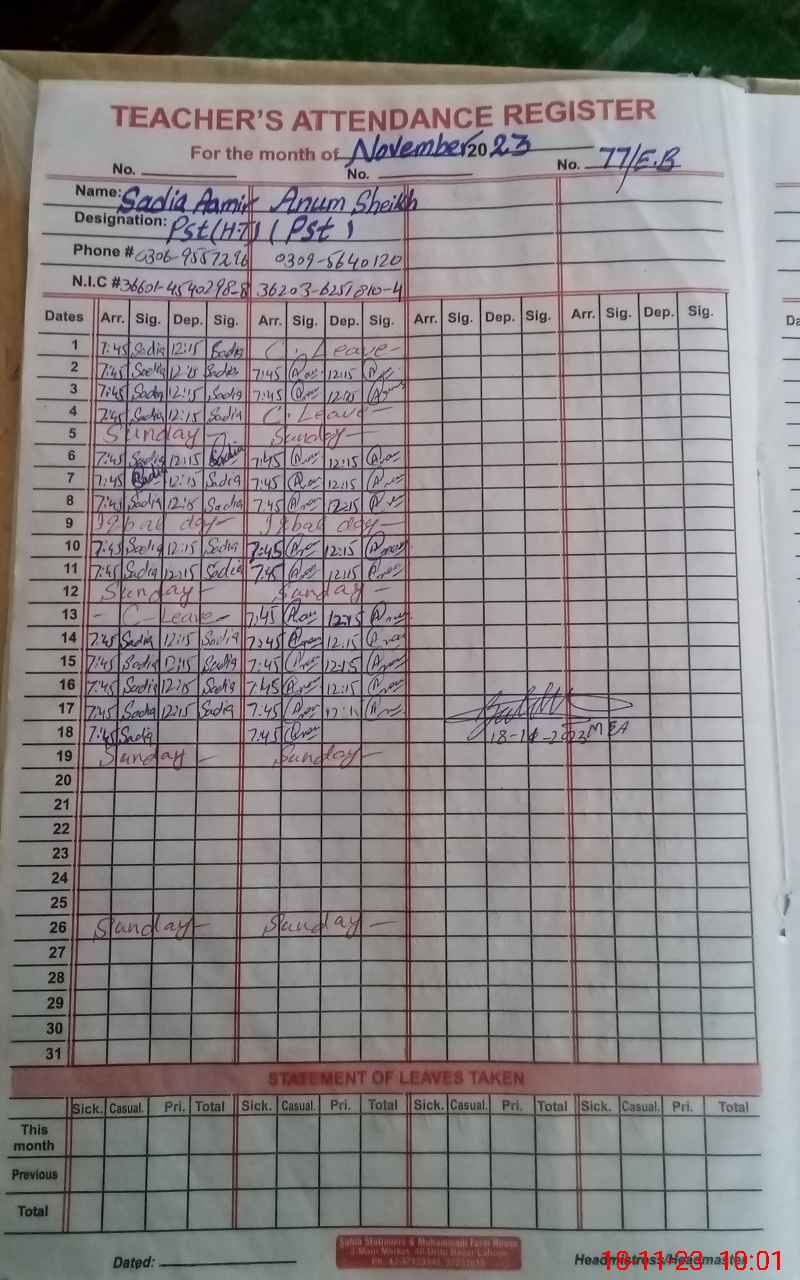 TEACHER'S ATTENDANCE REGISTER
For the month of November 2023
No. No. No. 77/E.B
Name: Sadia Aamir Anum Sheikh
Designation: Pst(H-T) (Pst)
Phone # 0306-9557296 0309-5640120
N.I.C # 36601-4540298-8 36203-6251810-4
Dates Arr. Sig. Dep. Sig. Arr. Sig. Dep. Sig. Arr. Sig. Dep. Sig. Arr. Sig. Dep. Sig.
1 7:45 Sadia 12:15 Sadia C. Leave-
2 7:45 Sadia 12:15 Sadia 7:45 12:15
3 7:45 Sadia 12:15 Sadia 7:45 12:15
4 7:45 Sadia 12:15 Sadia C. Leave-
5 Sunday - Sunday -
6 7:45 Sadia 12:15 Sadia 7:45 12:15
7 7:45 Sadia 12:15 Sadia 7:45 12:15
8 7:45 Sadia 12:15 Sadia 7:45 12:15
9 Iqbal day- Iqbal day-
10 7:45 Sadia 12:15 Sadia 7:45 12:15
11 7:45 Sadia 12:15 Sadia 7:45 12:15
12 Sunday - Sunday -
13 - C-Leave- 7:45 12:15
14 7:45 Sadia 12:15 Sadia 7:45 12:15
15 7:45 Sadia 12:15 Sadia 7:45 12:15
16 7:45 Sadia 12:15 Sadia 7:45 12:15
17 7:45 Sadia 12:15 Sadia 7:45
18 7:45 Sadia 7:45 18-11-2023 MEA
19 Sunday - Sunday-
20
21
22
23
24
25
26 Sunday- Sunday -
27
28
29
30
31
STATEMENT OF LEAVES TAKEN
Sick. Casual. Pri. Total Sick. Casual. Pri. Total Sick. Casual. Pri. Total Sick. Casual. Pri. Total
This month
Previous
Total
Dated: Headmistress/Headmaster
18-11-23 10:01